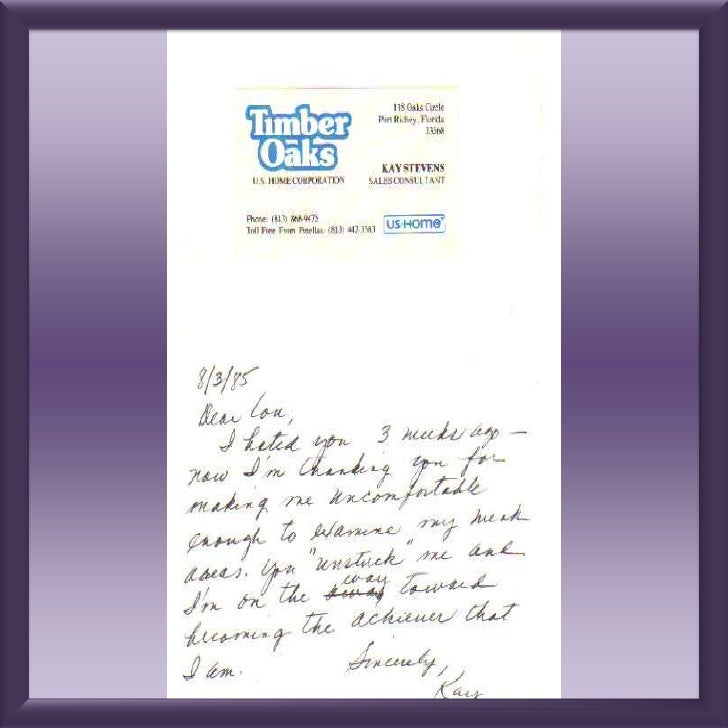 Timber
Oaks
U.S. HOME CORPORATION
118 Oaks Circle
Port Richey, Florida
33568
KAY STEVENS
SALES CONSULTANT
Phone: (813) 868-9475
Toll Free From Pinellas: (813) 442-3583
US HOME
8/3/85
Dear Lou,
I hated you 3 weeks ago —
now I'm thanking you for
making me uncomfortable
enough to examine my weak
areas. You "unstuck" me and
I'm on the way toward
becoming the achiever that
I am.
Sincerely,
Kay